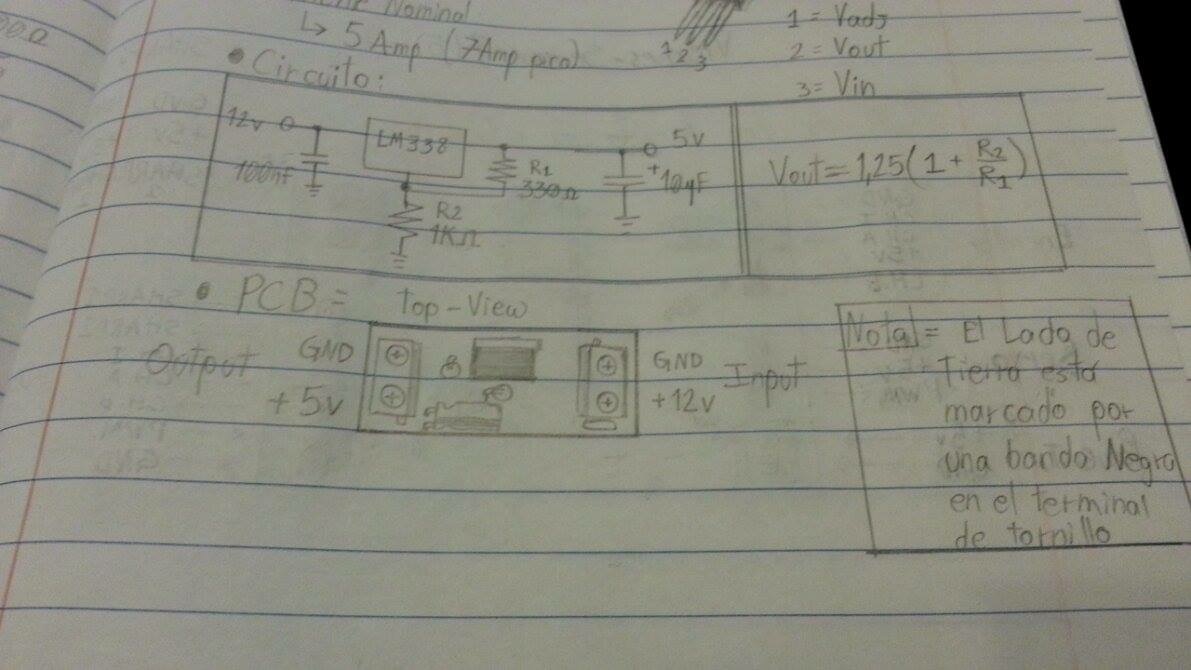 Nominal
↳ 5 Amp (7Amp pico)
1 2 3
1 = Vadj
2 = Vout
3 = Vin
• Circuito:
12v
LM338
5v
100nF
R1
330Ω
+
10µF
R2
1KΩ
Vout = 1,25(1 + R2/R1)
• PCB = Top-View
Output
GND
+5v
GND
+12v
Input
Nota = El Lado de
Tierra esta
marcado por
una banda Negra
en el terminal
de tornillo